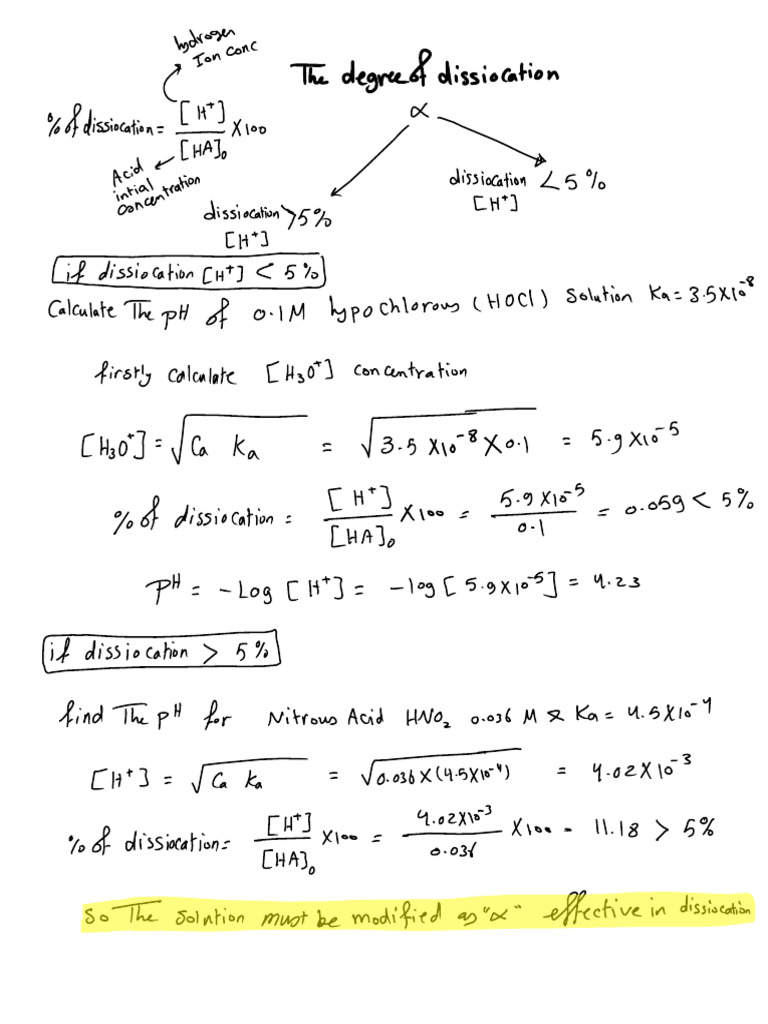 hydrogen
Ion conc
The degree of dissiocation
% of dissiocation = [H⁺] / [HA]₀ X 100
α
Acid
intial
concentration
dissiocation < 5%
[H⁺]
dissiocation > 5%
[H⁺]
if dissiocation [H⁺] < 5%
Calculate The pH of 0.1M hypochlorous (HOCl) Solution Ka = 3.5X10⁻⁸
firstly calculate [H₃O⁺] concentration
[H₃O⁺] = √(Ca Ka) = √(3.5 X10⁻⁸ X 0.1) = 5.9 X10⁻⁵
% of dissiocation = [H⁺] / [HA]₀ X100 = 5.9 X10⁻⁵ / 0.1 = 0.059 < 5%
PH = - Log [H⁺] = - log [5.9X10⁻⁵] = 4.23
if dissiocation > 5%
find The pH for Nitrous Acid HNO₂ 0.036 M & Ka = 4.5X10⁻⁴
[H⁺] = √(Ca Ka) = √(0.036 X (4.5X10⁻⁴)) = 4.02 X10⁻³
% of dissiocation = [H⁺] / [HA]₀ X100 = 4.02X10⁻³ / 0.036 X 100 = 11.18 > 5%
So The solution must be modified as "α" effective in dissiocation